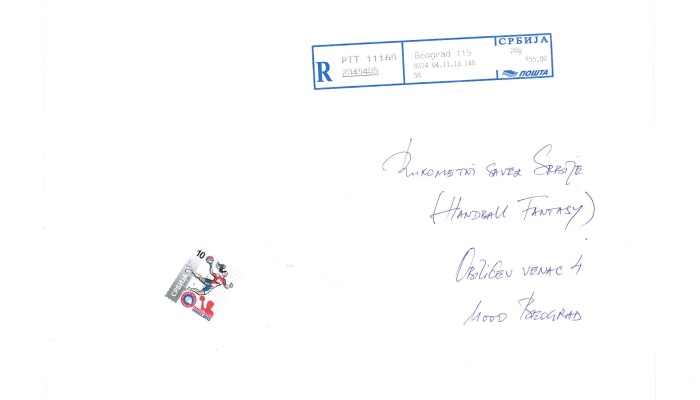 R
PTT 11160
2345405
Beograd 115
СРБИЈА
ПОШТА
Rukometni savez Srbije
(Handball Fantasy)
Obilićev venac 4
11000 Beograd
10
СРБИЈА